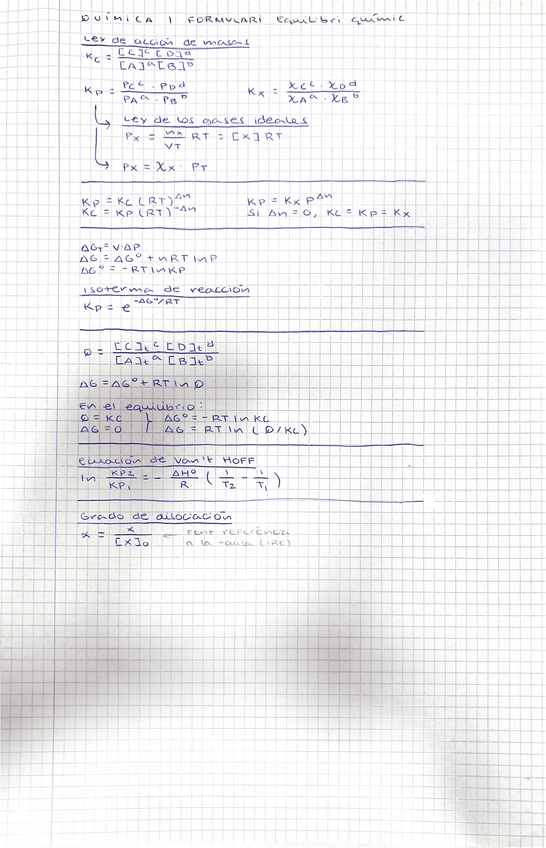 QUÍMICA I FORMULARI Equilibri químic
Ley de acción de masas
Kc = [C]^c [D]^d / [A]^a [B]^b
Kp = Pc^c · PD^d / PA^a · PB^b    Kx = χc^c · χD^d / χA^a · χB^b
Ley de los gases ideales
Px = nx/VT RT = [x] RT
Px = χx · PT
Kp = Kc (RT)^Δn    Kp = Kx P^Δn
Kc = Kp (RT)^-Δn    Si Δn = 0, Kc = Kp = Kx
ΔGT = V·ΔP
ΔG = ΔG° + nRT ln P
ΔG° = -RT ln KP
Isoterma de reacción
Kp = e^-ΔG°/RT
Q = [C]t^c [D]t^d / [A]t^a [B]t^b
ΔG = ΔG° + RT ln Q
En el equilibrio:
Q = Kc } ΔG° = -RT ln Kc
ΔG = 0 } ΔG = RT ln (Q/Kc)
Ecuación de Van't HOFF
ln KP2/KP1 = - ΔH°/R (1/T2 - 1/T1)
Grado de disociación
α = x/[X]0 ← Fent referència
a la taula (IRE)